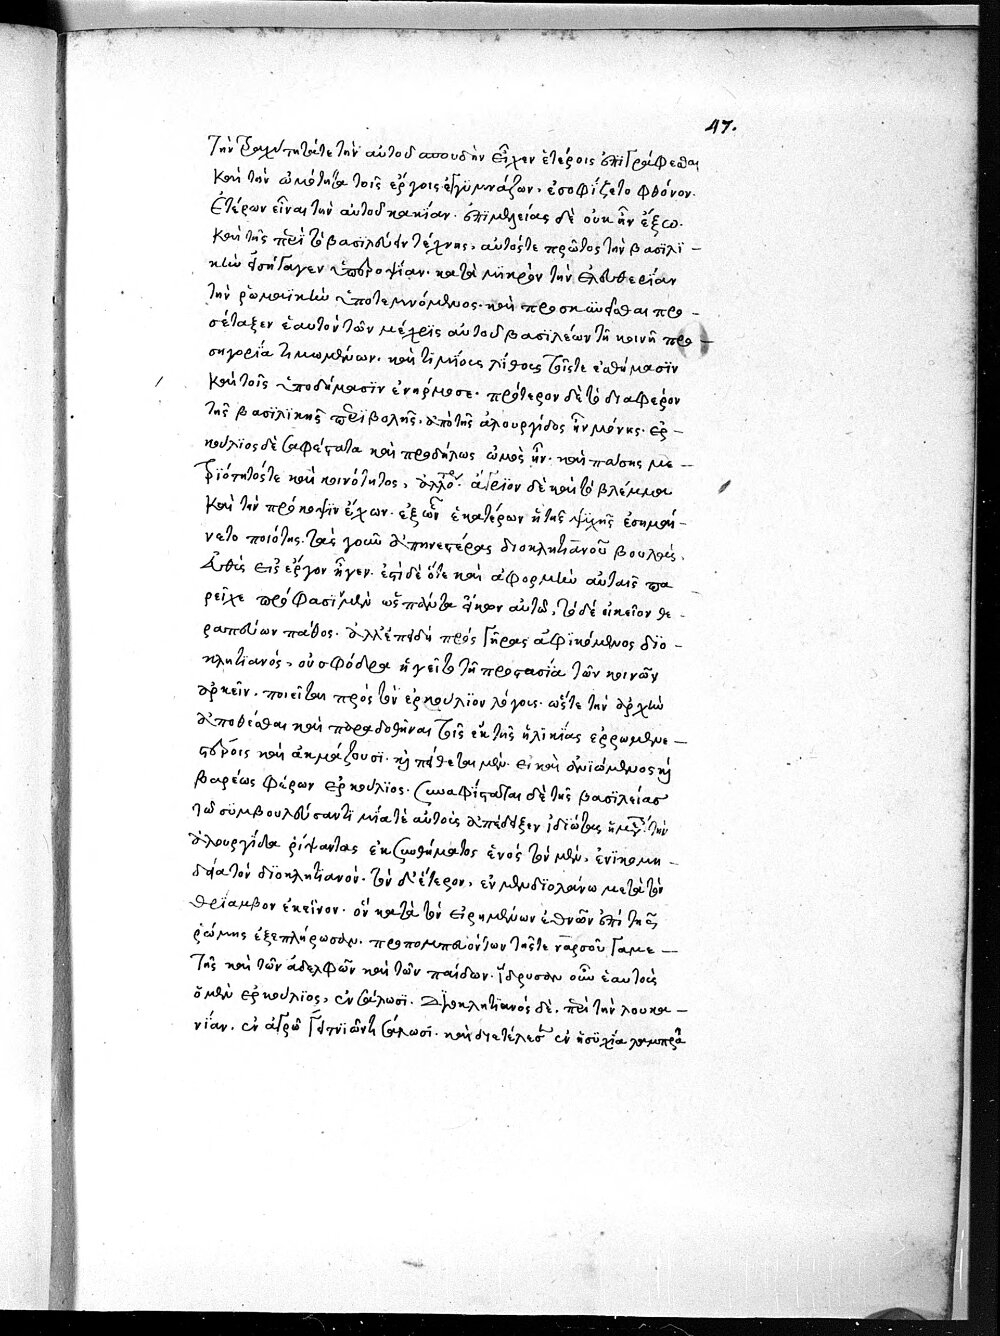 47.
Τὴν τραχύτητά τε τὴν αὐτοῦ σπουδὴν εἶχεν ἑτέροις ἐπιγράφεσθαι
καὶ τὴν ὠμότητα τοῖς ἔργοις ἐγγυμνάζων, ἐσοφίζετο φθόνον.
ἑτέρων εἶναι τὴν αὐτοῦ κακίαν. ἐπιμελείας δὲ οὐκ ἦν ἔξω.
καὶ τῆς περὶ τὸ βασιλεύειν τέχνης, αὐτός τε πρῶτος τὴν βασιλι
κὴν εἰσήγαγεν ὑπεροψίαν. κατὰ μικρὸν τὴν ἐλευθερίαν
τὴν ῥωμαϊκὴν ὑποτεμνόμενος. καὶ προσκυνεῖσθαι προ
σέταξεν ἑαυτὸν τῶν μέχρις αὐτοῦ βασιλέων τῇ κοινῇ προ
σηγορίᾳ τιμωμένων. καὶ τιμίοις λίθοις τοῖς τε ἐσθήμασιν
καὶ τοῖς ὑποδήμασιν ἐνήρμοσε. πρότερον δὲ τὸ διαφέρον
τῆς βασιλικῆς περιβολῆς, ἀπὸ τῆς ἁλουργίδος ἦν μόνης. ἑρ
κούλιος δὲ σαφέστατα καὶ προδήλως ὠμὸς ἦν. καὶ πάσης με
τριότητός τε καὶ κοινότητος, ἀλλότρ. ἄγριον δὲ καὶ τὸ βλέμμα
καὶ τὴν πρόκοψιν ἔχων. ἐξ ὧν ἑκατέρων ἡ τῆς ψυχῆς ἐσημαί
νετο ποιότης. τὰς γοῦν ἀπηνεστέρας διοκλητιανοῦ βουλὰς,
εὐθὺς εἰς ἔργον ἦγεν. ἔστι δὲ ὅτε καὶ ἀφορμὴν αὐταῖς πα
ρεῖχε πρόφασιν μὲν ὡς πάντα εἴκων αὐτῷ, τὸ δὲ οἰκεῖον θε
ραπεύων πάθος. ἀλλ' ἐπειδὴ πρὸς γῆρας ἀφικόμενος διο
κλητιανός, οὐ σφόδρα ἡγεῖτο τῇ προστασίᾳ τῶν κοινῶν
ἀρκεῖν. ποιεῖται πρὸς τὸν ἑρκούλιον λόγους. ὥστε τὴν ἀρχὴν
ἀποθέσθαι καὶ παραδοθῆναι τοῖς ἐκ τῆς ἡλικίας ἐρρωμενε
στέροις καὶ ἀκμάζουσι. καὶ πείθεται μὲν. εἰ καὶ ἀνιώμενος καὶ
βαρέως φέρων ἑρκούλιος. συναφίσταται δὲ τῆς βασιλείας
τῷ συμβουλεύσαντι μία τε αὐτοὺς ἀπέδειξεν ἰδιώτας ἡμέρα. τὴν
ἁλουργίδα ῥίψαντας ἐκ συνθήματος ἑνὸς τὸν μὲν, ἐν νικομη
δείᾳ τὸν διοκλητιανόν. τὸν δ' ἕτερον, ἐν μενδιολάνω μετὰ τὸν
θρίαμβον ἐκεῖνον. ὃν κατὰ τῶν εἰρημένων ἐθνῶν ἐπὶ τῆς
ῥώμης ἐξεπλήρωσαν. προπομπευόντων τῆς τε ναρσοῦ γαμε
τῆς καὶ τῶν ἀδελφῶν καὶ τῶν παίδων. ἵδρυσαν οὖν ἑαυτοὺς
ὁ μὲν ἑρκούλιος, ἐν σάλωσι. Διοκλητιανός δὲ, περὶ τὴν λουκα
νίαν. ἐν ἀγρῷ γειτνιῶντι σάλωσι. καὶ διετέλεσεν ἐν ἡσυχίᾳ λαμπρᾷ